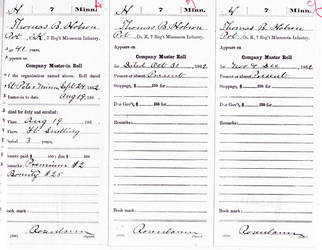 H 7 Minn.
Thomas B Hobson
Pvt, Co. K, 7 Reg't Minnesota Infantry.
Age 41 years.
Appears on
Company Muster-in Roll
of the organization named above. Roll dated
St Peter Minn, Sept 24, 1862
Muster-in to date Aug 19, 186
Joined for duty and enrolled:
When Aug 19, 186
Where Ft. Snelling
Period 3 years.
Bounty paid $ 100; due $ 100
Remarks: Premium $2
Bounty $25
Rosenbaum
Copyist.
H 7 Minn.
Thomas B Hobson
Pvt, Co. K, 7 Reg't Minnesota Infantry.
Appears on
Company Muster Roll
for Dated Oct 31, 1862
Present or absent Present
Stoppage, $ 100 for
Due Gov't, $ 100 for
Remarks:
Book mark:
Rosenbaum
Copyist.
H 7 Minn.
Thomas B Hobson
Pvt, Co. K, 7 Reg't Minnesota Infantry.
Appears on
Company Muster Roll
for Nov & Dec, 1862
Present or absent Present
Stoppage, $ 100 for
Due Gov't, $ 100 for
Remarks:
Book mark:
Rosenbaum
Copyist.